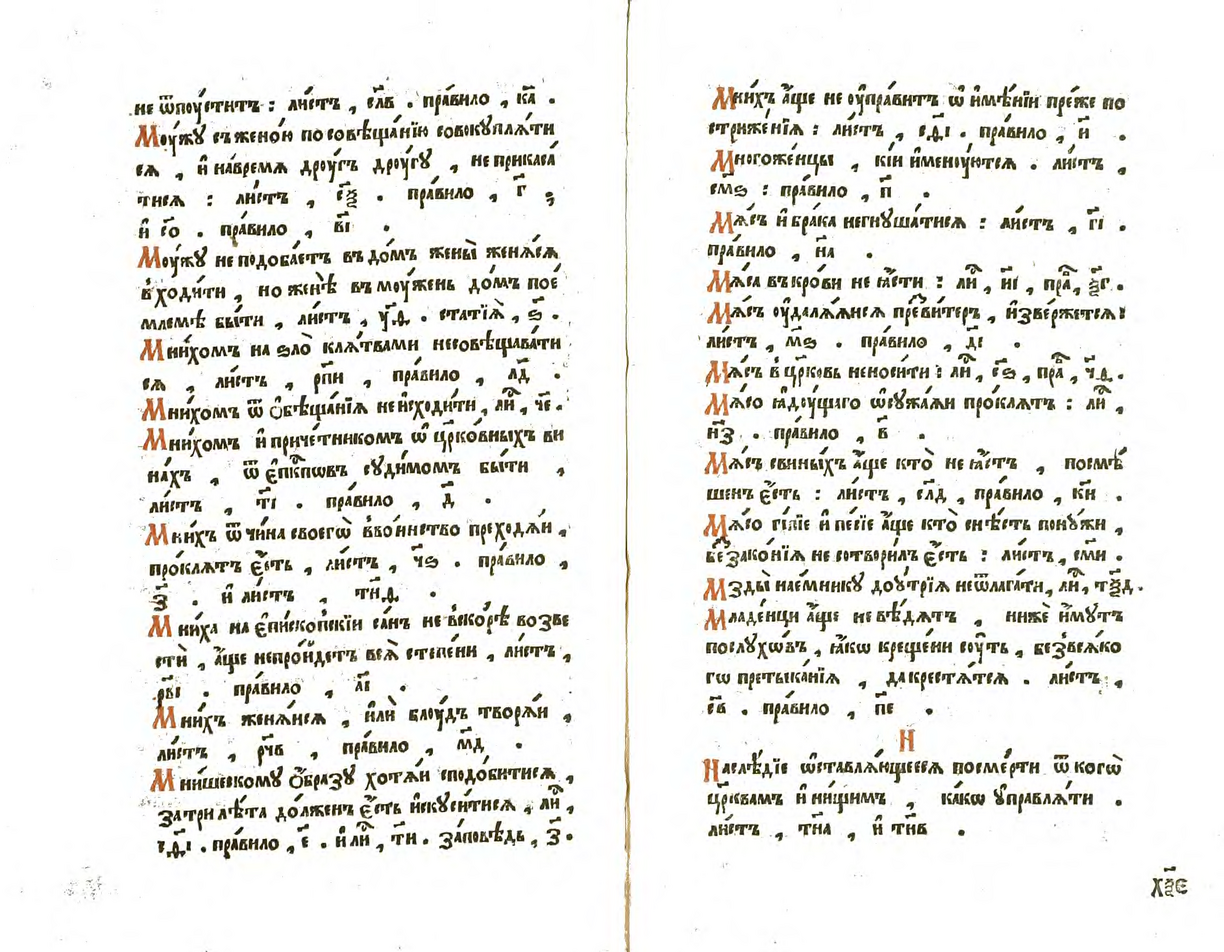 не ѿпоу́ститъ : ли́стъ , сл҃в . пра́вило , ка҃ .
Моу́жу съ жено́ю по совѣща́нїю совокупля́ти
сѧ , и҆ на́времѧ дроу́гъ дроу́гу , не прикаса́
тисѧ : ли́стъ , с҃ѯ . пра́вило , г҃ ,
и҆ с҃о . пра́вило , в҃і .
Моу́жу не подоба́етъ въ до́мъ жены̀ женѧ́сѧ
в̾ходи́ти , но женѣ̀ въ моу́жень до́мъ пое́
млемѣ бы́ти , ли́стъ , у҃д . статїѧ̀ , ѕ҃ .
Мни́хомъ на ѕло̀ клѧ́твами несовѣщава́ти
сѧ , ли́стъ , рп҃и , пра́вило , л҃д .
Мни́хомъ ѿ ѻ҆бѣща́нїѧ не и҆сходи́ти , ли́ , ч҃е .
Мни́хомъ и҆ приче́тникомъ ѡ҆ цр҃ко́вныхъ ви
на́хъ , ѿ є҆пкⷭ҇пѡвъ суди́момъ бы́ти ,
ли́стъ , т҃і . пра́вило , д҃ .
Мни́хъ ѿ чи́на своегѡ̀ в̾во́инство преходѧ́и ,
про́клѧтъ є҆́сть , ли́стъ , ч҃ѕ . пра́вило ,
з҃ . и҆ ли́стъ , тн҃д .
Мни́ха на є҆пи́скопскїи са́нъ не в̾ско́рѣ возве
стѝ , а҆́ще непро́йдетъ всѧ̀ степе́ни , ли́стъ ,
рв҃і . пра́вило , а҃і .
Мни́хъ женѧ́исѧ , и҆лѝ блоу́дъ творѧ́и ,
ли́стъ , рч҃в , пра́вило , м҃д .
Мни́шескому ѻ҆́бразу хотѧ́и сподо́битисѧ ,
за три лѣ́та до́лженъ є҆́сть и҆скуси́тисѧ , ли́ ,
сд҃і . пра́вило , е҃ . и҆ ли́ , т҃и . за́повѣдь , з҃ .
Мни́хъ а҆́ще не оу҆пра́витъ ѡ҆ и҆мѣ́нїи пре́же по
стриже́нїѧ : ли́стъ , сд҃і . пра́вило , и҃ .
Многоже́нцы , кі́и и҆менꙋ́ютсѧ . ли́стъ ,
см҃ѕ : пра́вило , п҃ .
Мѧ́съ и҆ бра́ка негнуша́тисѧ : ли́стъ , г҃і .
пра́вило , н҃а .
Мѧ́са въ кро́ви не ꙗ҆́сти : ли́ , н҃і , пра́ , ѯ҃г .
Мѧ́съ оу҆далѧ́ѧисѧ пре́витеръ , и҆зве́ржетсѧ :
ли́стъ , м҃ѕ . пра́вило , д҃і .
Мѧ́съ в̾ цр҃ковь неноси́ти : ли́ , с҃ѕ , пра́ , ч҃д .
Мѧ́со ꙗ҆доу́щаго ѡ҆сужа́ѧи про́клѧтъ : ли́ ,
н҃з . пра́вило , в҃ .
Мѧ́съ свины́хъ а҆́ще кто̀ не ꙗ҆́стъ , посмѣ́
шенъ є҆́сть : ли́стъ , сл҃д , пра́вило , к҃и .
Мѧ́со гни́лїе и҆ пе́сїе а҆́ще кто̀ снѣ́сть по ну́жи ,
беззако́нїѧ не сотвори́лъ є҆́сть : ли́стъ , см҃и .
Мзды̀ нае́мнику до оу́трїѧ неѿлага́ти , ли́ , тѯ҃д .
Младе́нци а҆́ще не вѣ́дѧтъ , нижѐ и҆́мутъ
послу́хѡвъ , ꙗ҆́кѡ креще́ни соу́ть , безвсѧ́ко
гѡ претыка́нїѧ , да крестѧ́тсѧ . ли́стъ ,
с҃в . пра́вило , п҃е .
Н
Наслѣ́дїе ѡ҆ставлѧ́ющеесѧ по сме́рти ѿ когѡ̀
цр҃квамъ и҆ ни́щимъ , ка́кѡ управлѧ́ти .
ли́стъ , тн҃а , и҆ тн҃в .
хѯ҃е